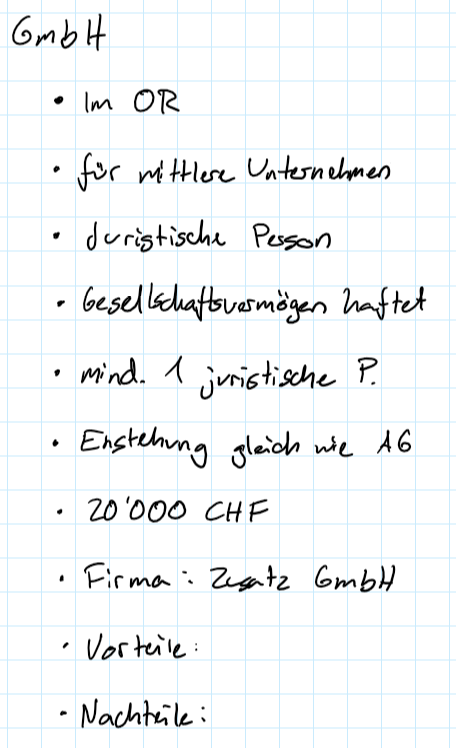 GmbH
• Im OR
• für mittlere Unternehmen
• Juristische Person
• Gesellschaftsvermögen haftet
• mind. 1 juristische P.
• Enstehung gleich wie AG
• 20'000 CHF
• Firma: Zusatz GmbH
• Vorteile:
• Nachteile: